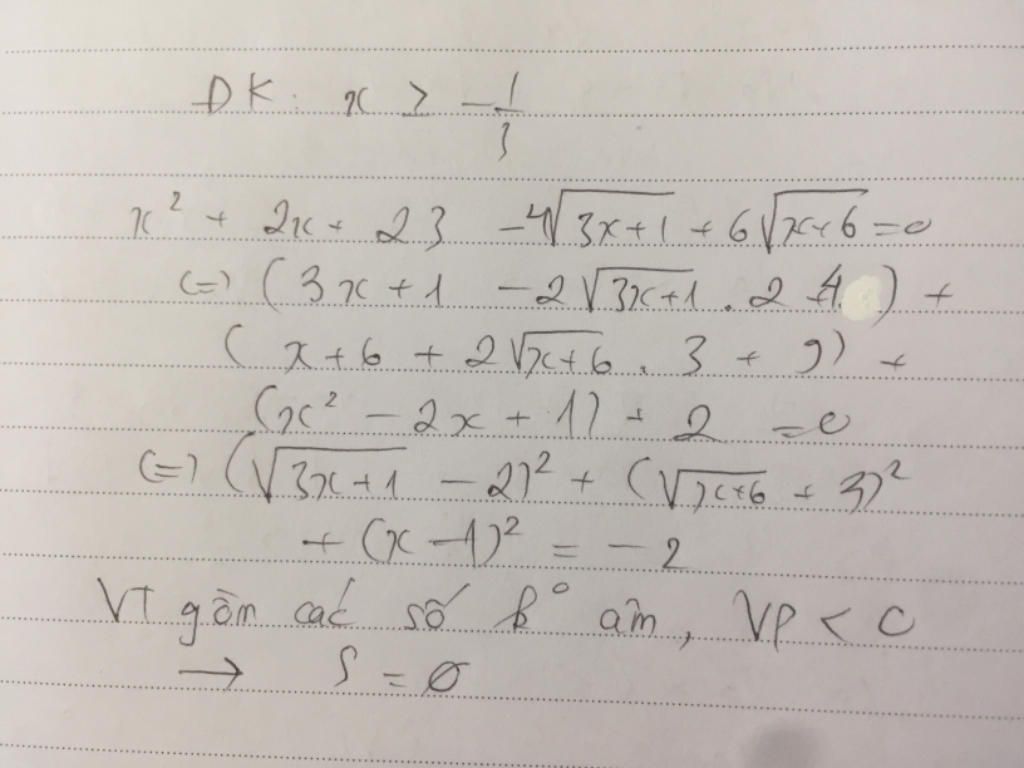 ĐK: x ≥ -1/3
x² + 2x + 23 -4√(3x+1) + 6√(x+6) = 0
(=) (3x + 1 - 2√(3x+1) . 2 + 4) +
(x + 6 + 2√(x+6) . 3 + 9) +
(x² - 2x + 1) + 2 = 0
(=) (√(3x+1) - 2)² + (√(x+6) + 3)²
+ (x - 1)² = - 2
VT gồm các số k° âm, VP < 0
→ S = ∅